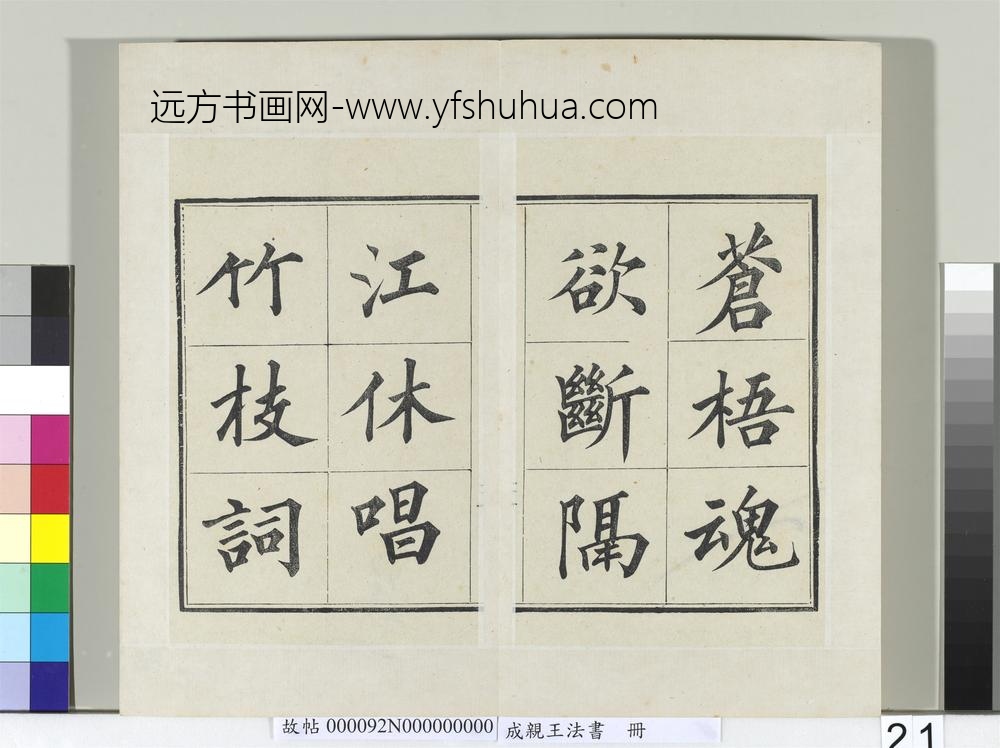 远方书画网-www.yfshuhua.com
蒼梧魂
欲斷隔
江休唱
竹枝詞
故帖 000092N000000000 成親王法書 冊
21